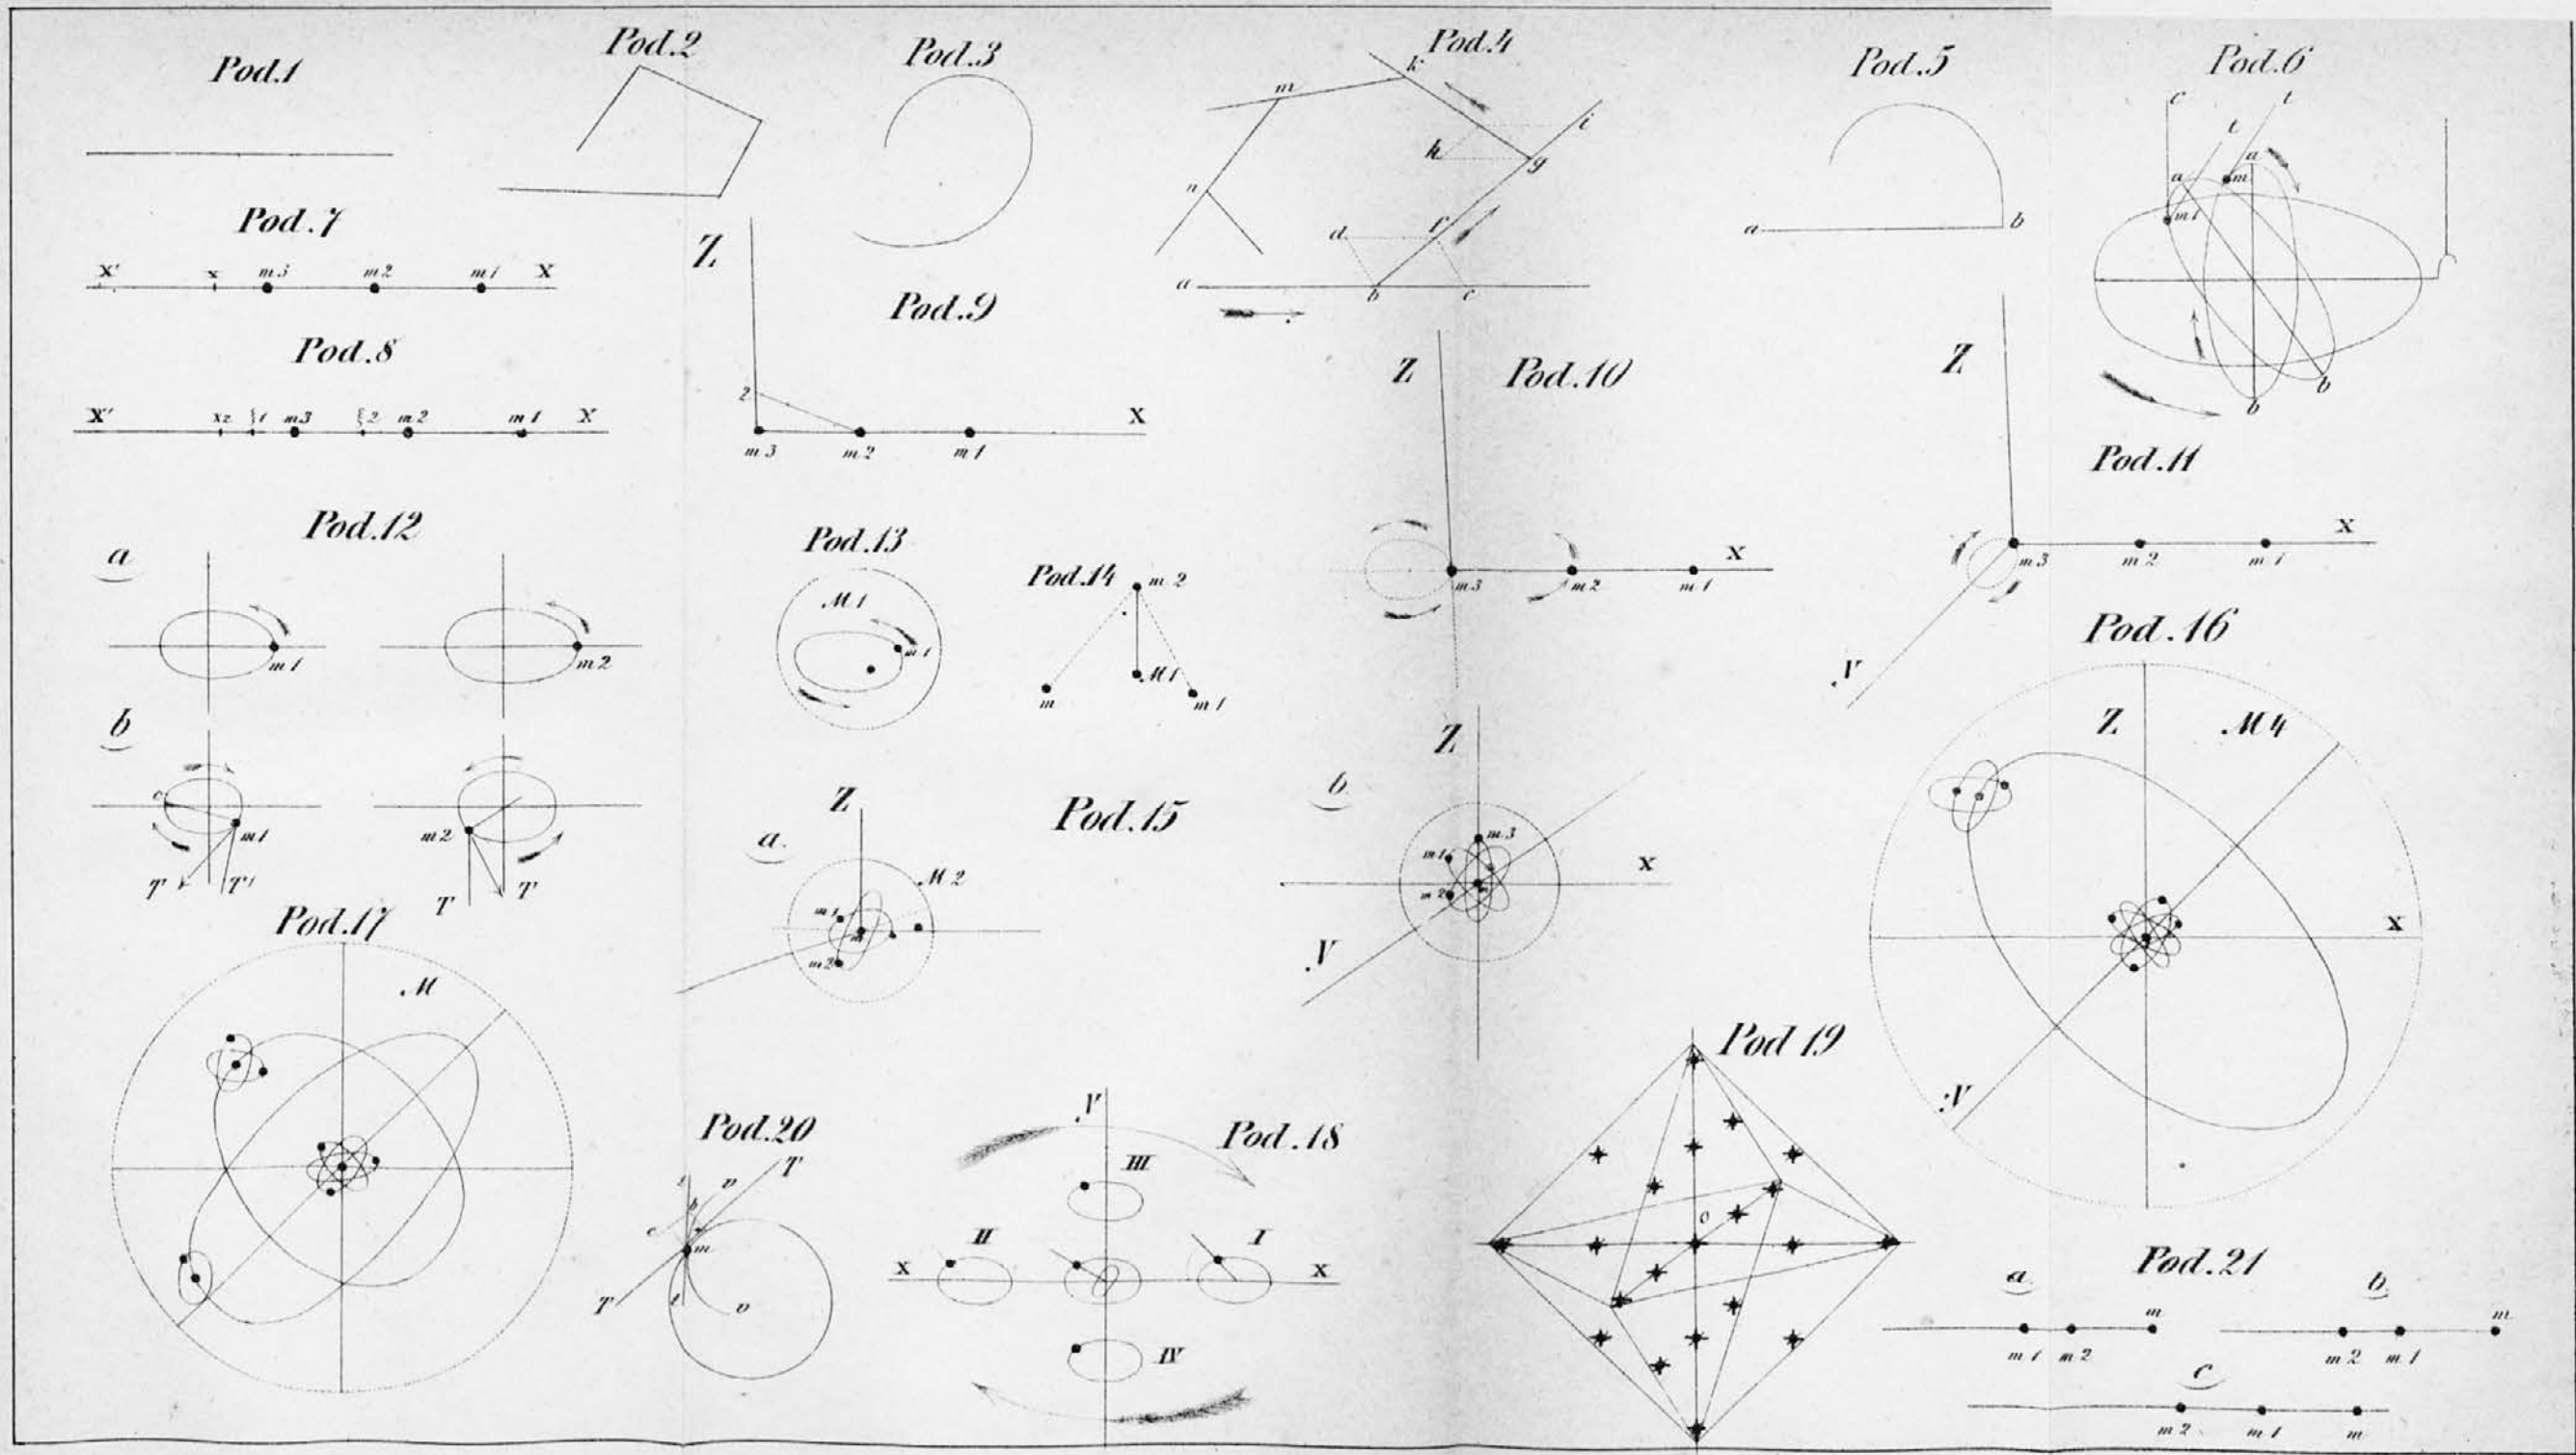 Pod.1
Pod.2
Pod.3
Pod.4
k
m
i
h
g
n
d
f
a
b
c
Pod.5
a
b
Pod.6
c
t
t
a
a
m
m1
b
b
Pod.7
X'
x
m3
m2
m1
X
Pod.8
X'
x2
ξ1
m3
ξ2
m2
m1
X
Pod.9
Z
2
X
m3
m2
m1
Pod.10
Z
X
m3
m2
m1
Pod.11
Z
X
m3
m2
m1
Y
Pod.12
a
m1
m2
b
c
m1
T
T'
m2
T
T
Pod.13
M1
m1
Pod.14
m2
M1
m
m1
Pod.15
a.
Z
M2
m1
m
m2
b
Z
m3
m1
m2
X
Y
Pod.16
Z
M4
X
Y
Pod.17
M
Pod.20
T
t
v
b
c
m
T
t
v
Pod.18
Y
III
II
I
X
X
IV
Pod 19
o
Pod.21
a.
m
m1 m2
b.
m
m2 m1
c
m2 m1 m